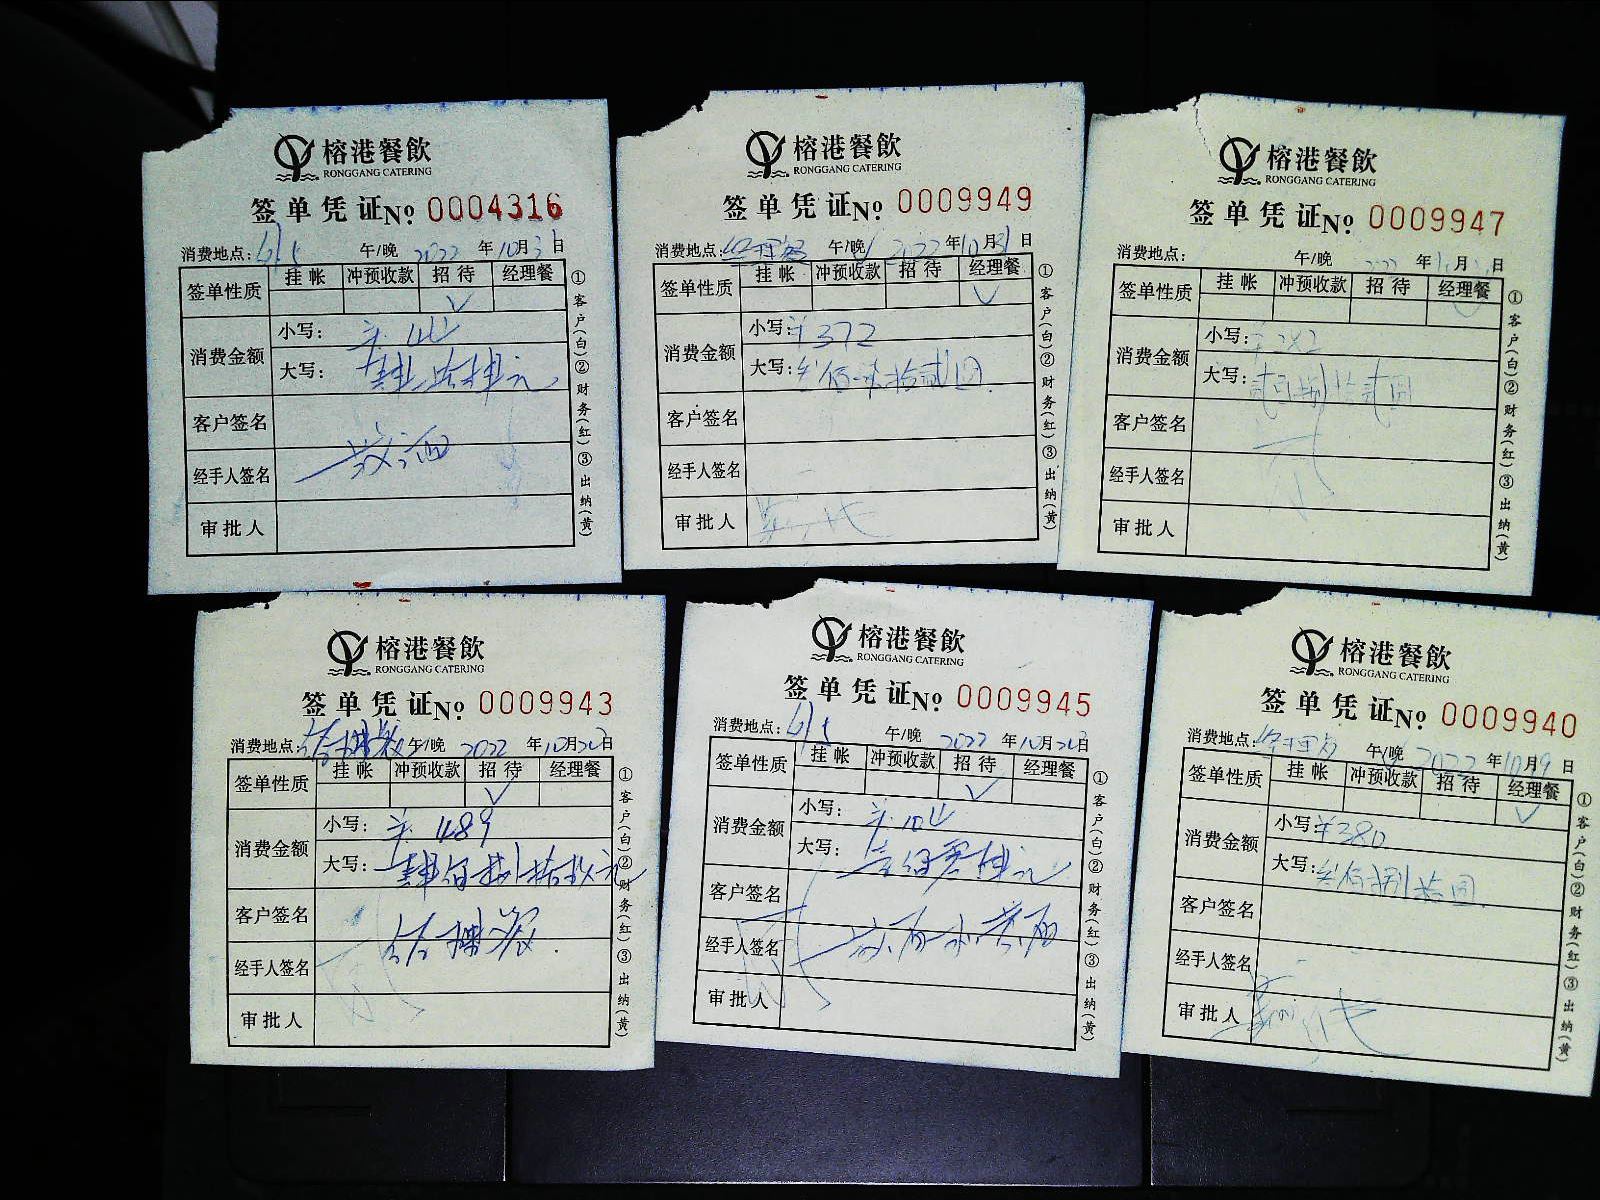 榕港餐飲
RONGGANG CATERING
签单凭证№ 0004316
消费地点： 午/晚 2022 年10月31日
签单性质 挂帐 冲预收款 招待 经理餐
√
消费金额 小写：
大写：
客户签名
经手人签名
审批人
①客户(白)②财务(红)③出纳(黄)
榕港餐飲
RONGGANG CATERING
签单凭证№ 0009949
消费地点： 午/晚 2022 年10月31日
签单性质 挂帐 冲预收款 招待 经理餐
√
消费金额 小写：¥372
大写：叁佰柒拾贰圆
客户签名
经手人签名
审批人
①客户(白)②财务(红)③出纳(黄)
榕港餐飲
RONGGANG CATERING
签单凭证№ 0009947
消费地点： 午/晚 年 月 日
签单性质 挂帐 冲预收款 招待 经理餐
√
消费金额 小写：
大写：
客户签名
经手人签名
审批人
①客户(白)②财务(红)③出纳(黄)
榕港餐飲
RONGGANG CATERING
签单凭证№ 0009943
消费地点： 午/晚 2022 年10月 日
签单性质 挂帐 冲预收款 招待 经理餐
√
消费金额 小写：¥489
大写：肆佰捌拾玖元
客户签名
经手人签名
审批人
①客户(白)②财务(红)③出纳(黄)
榕港餐飲
RONGGANG CATERING
签单凭证№ 0009945
消费地点： 午/晚 2022 年10月 日
签单性质 挂帐 冲预收款 招待 经理餐
√
消费金额 小写：¥104
大写：壹佰零肆元
客户签名
经手人签名
审批人
①客户(白)②财务(红)③出纳(黄)
榕港餐飲
RONGGANG CATERING
签单凭证№ 0009940
消费地点： 午/晚 2022 年10月19日
签单性质 挂帐 冲预收款 招待 经理餐
√
消费金额 小写：¥380
大写：叁佰捌拾圆
客户签名
经手人签名
审批人
①客户(白)②财务(红)③出纳(黄)